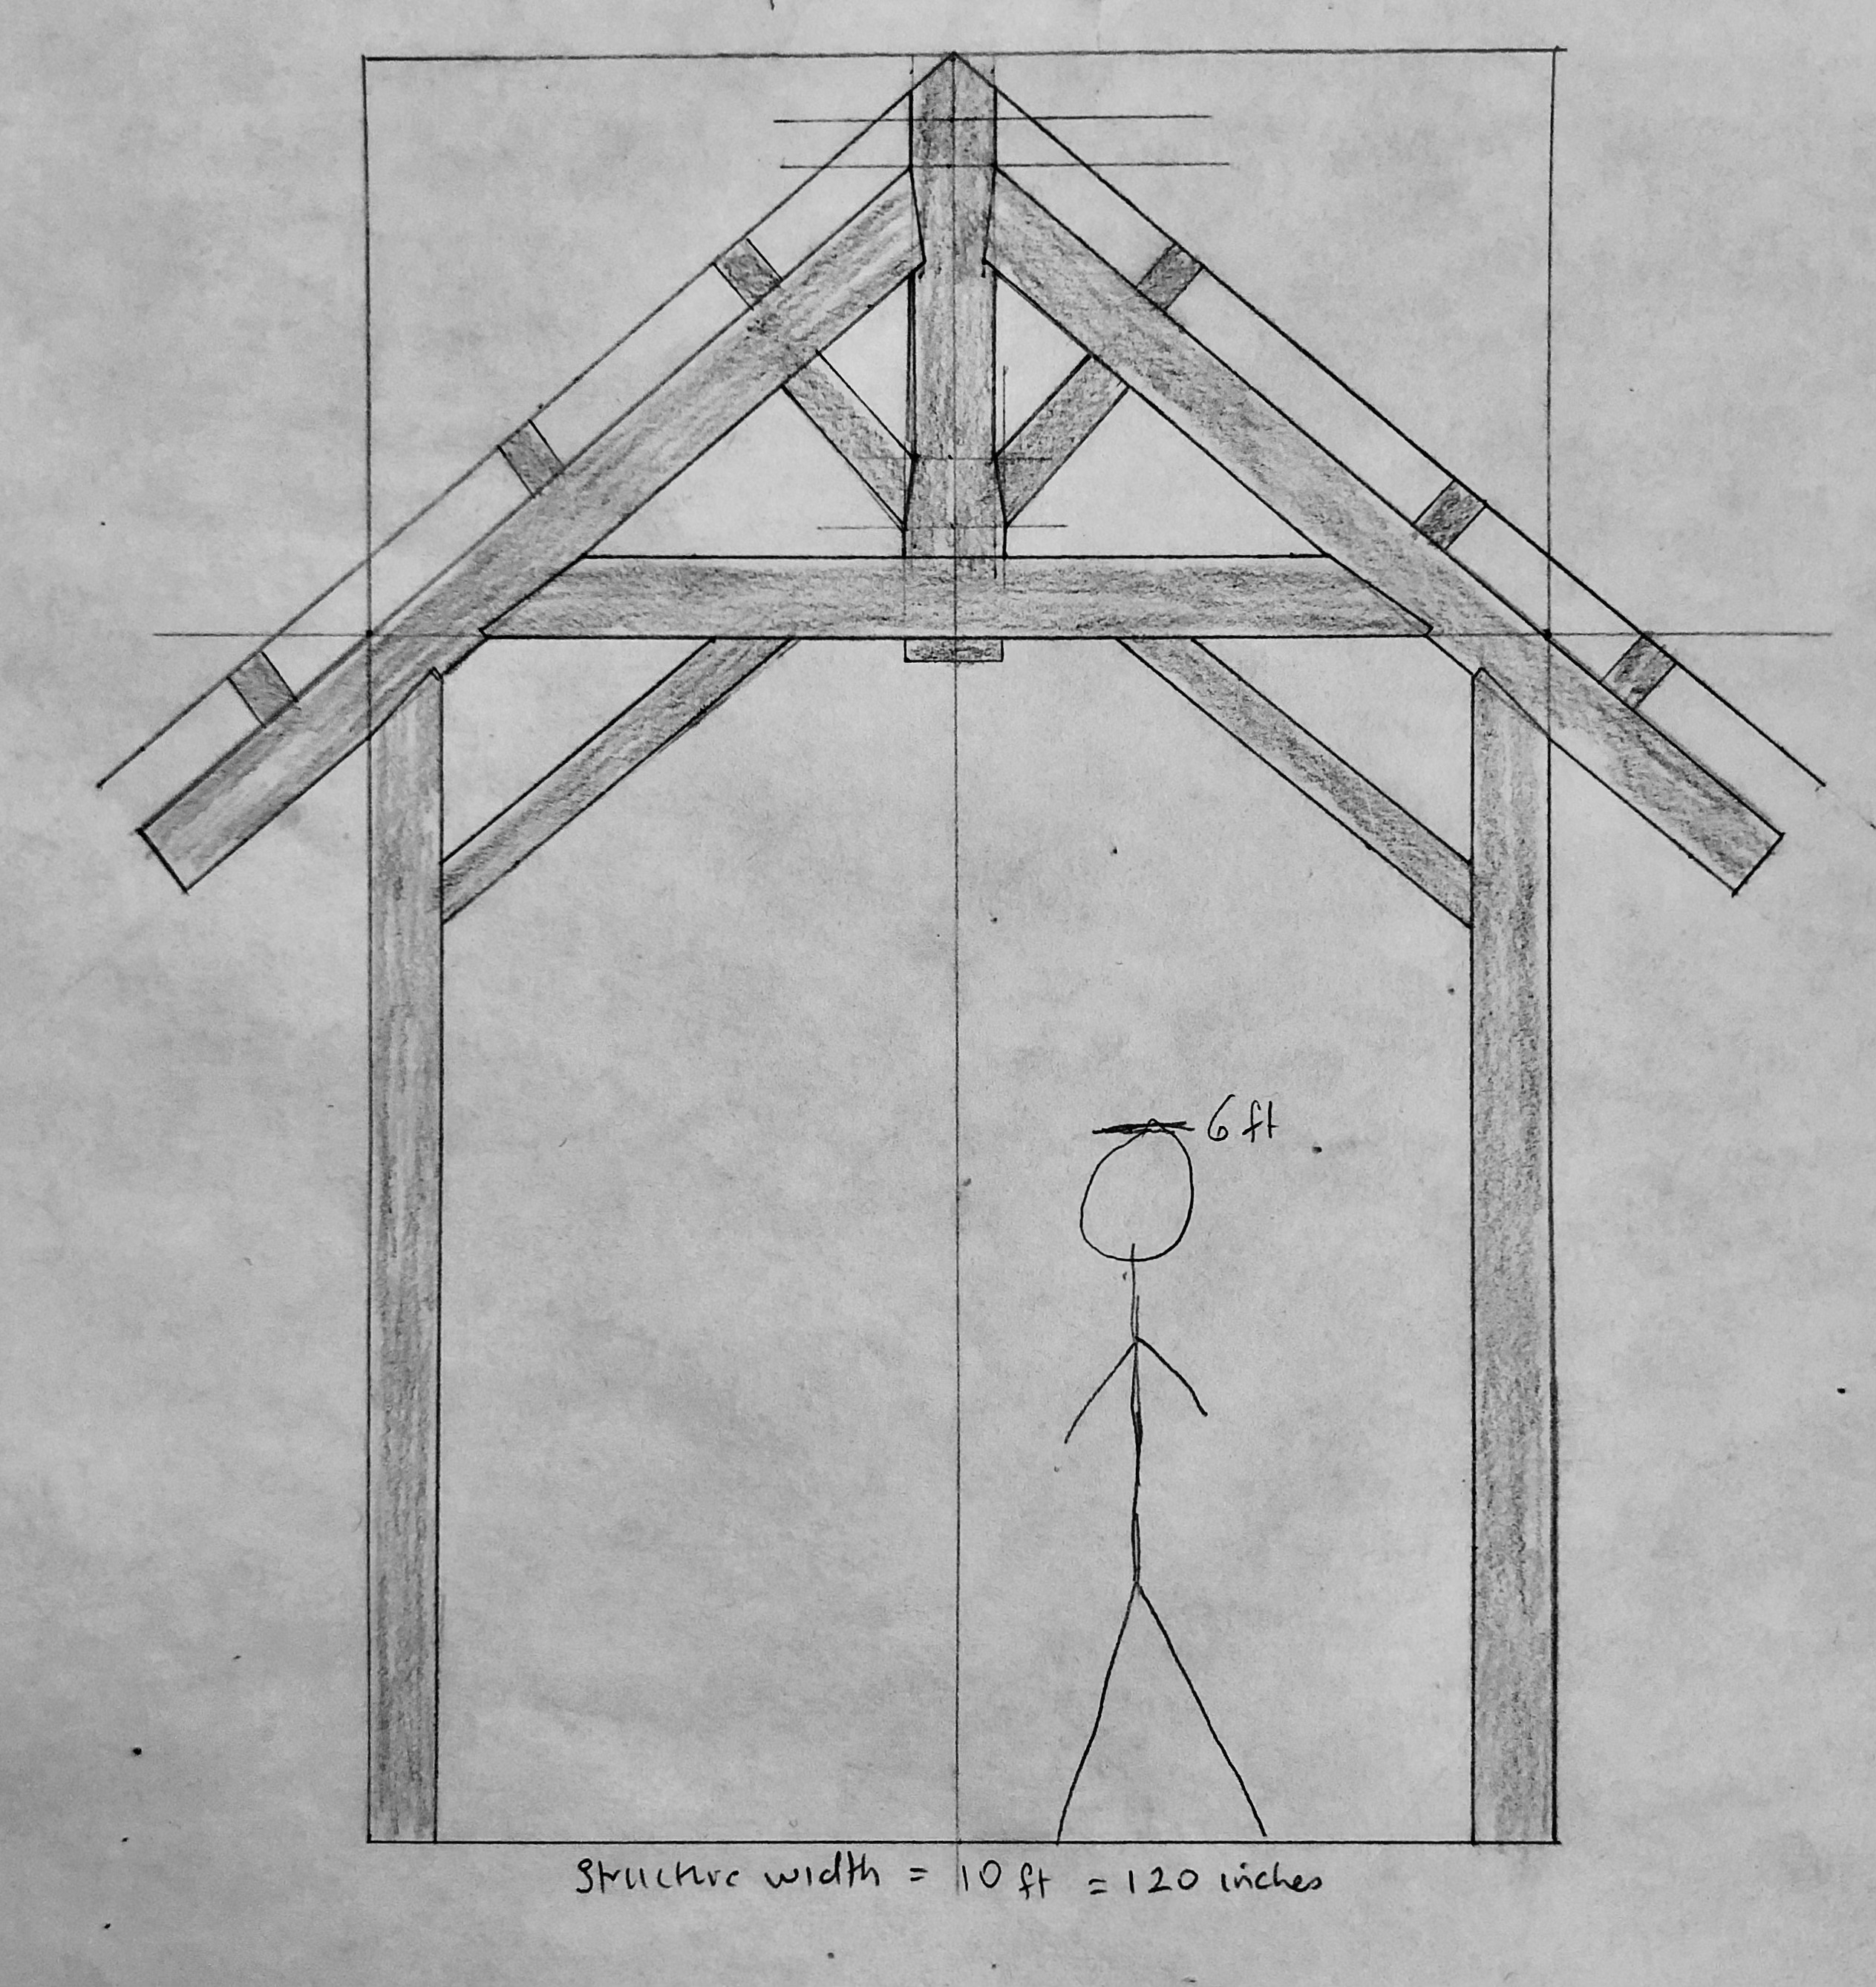 6 ft
Structure width = 10 ft = 120 inches